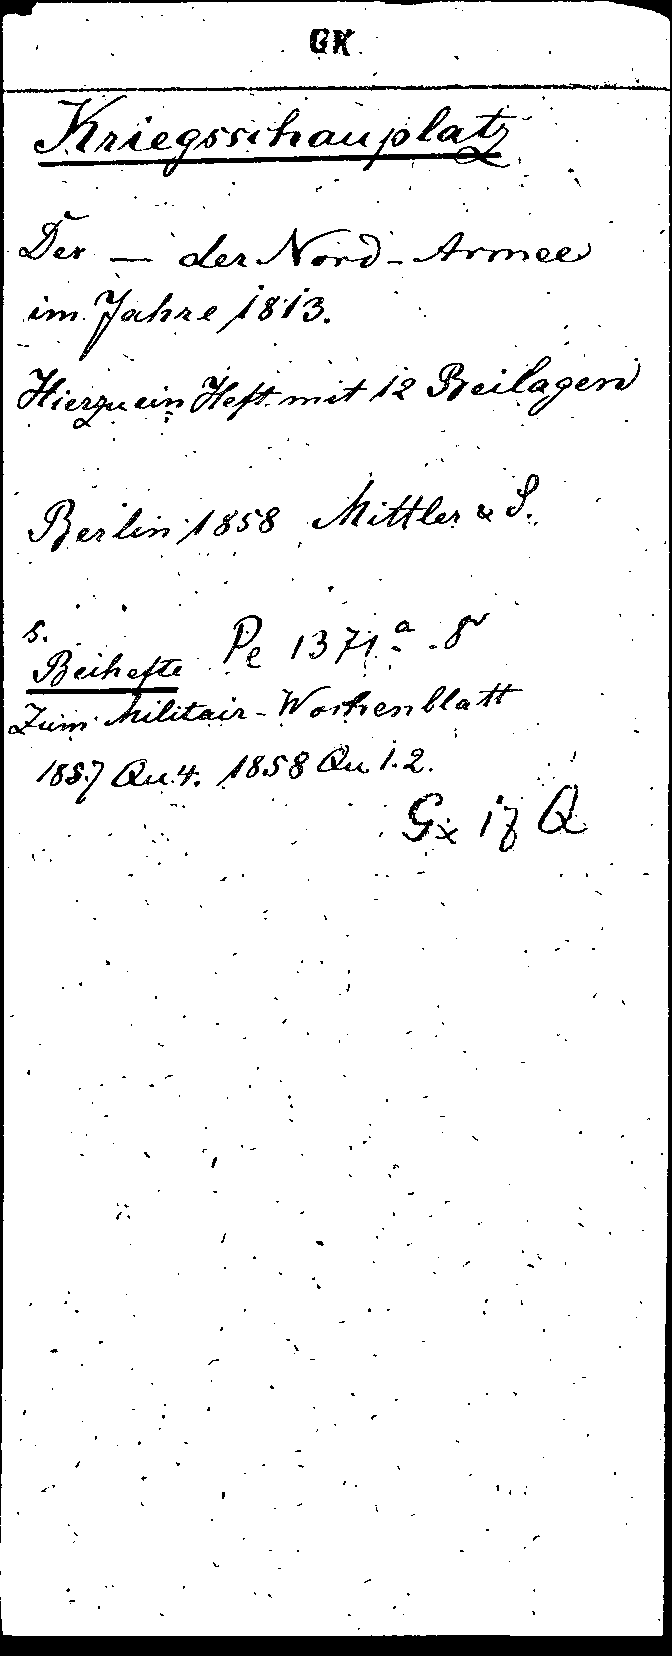 GK
Kriegsschauplatz
Der — der Nord-Armee
im Jahre 1813.
Hierzu ein Heft mit 12 Beilagen
Berlin 1858 Mittler & S.
s. Pe 1371 a. 8°
Beihefte
Zum Militair-Wochenblatt
1857 Qu. 4. 1858 Qu 1. 2.